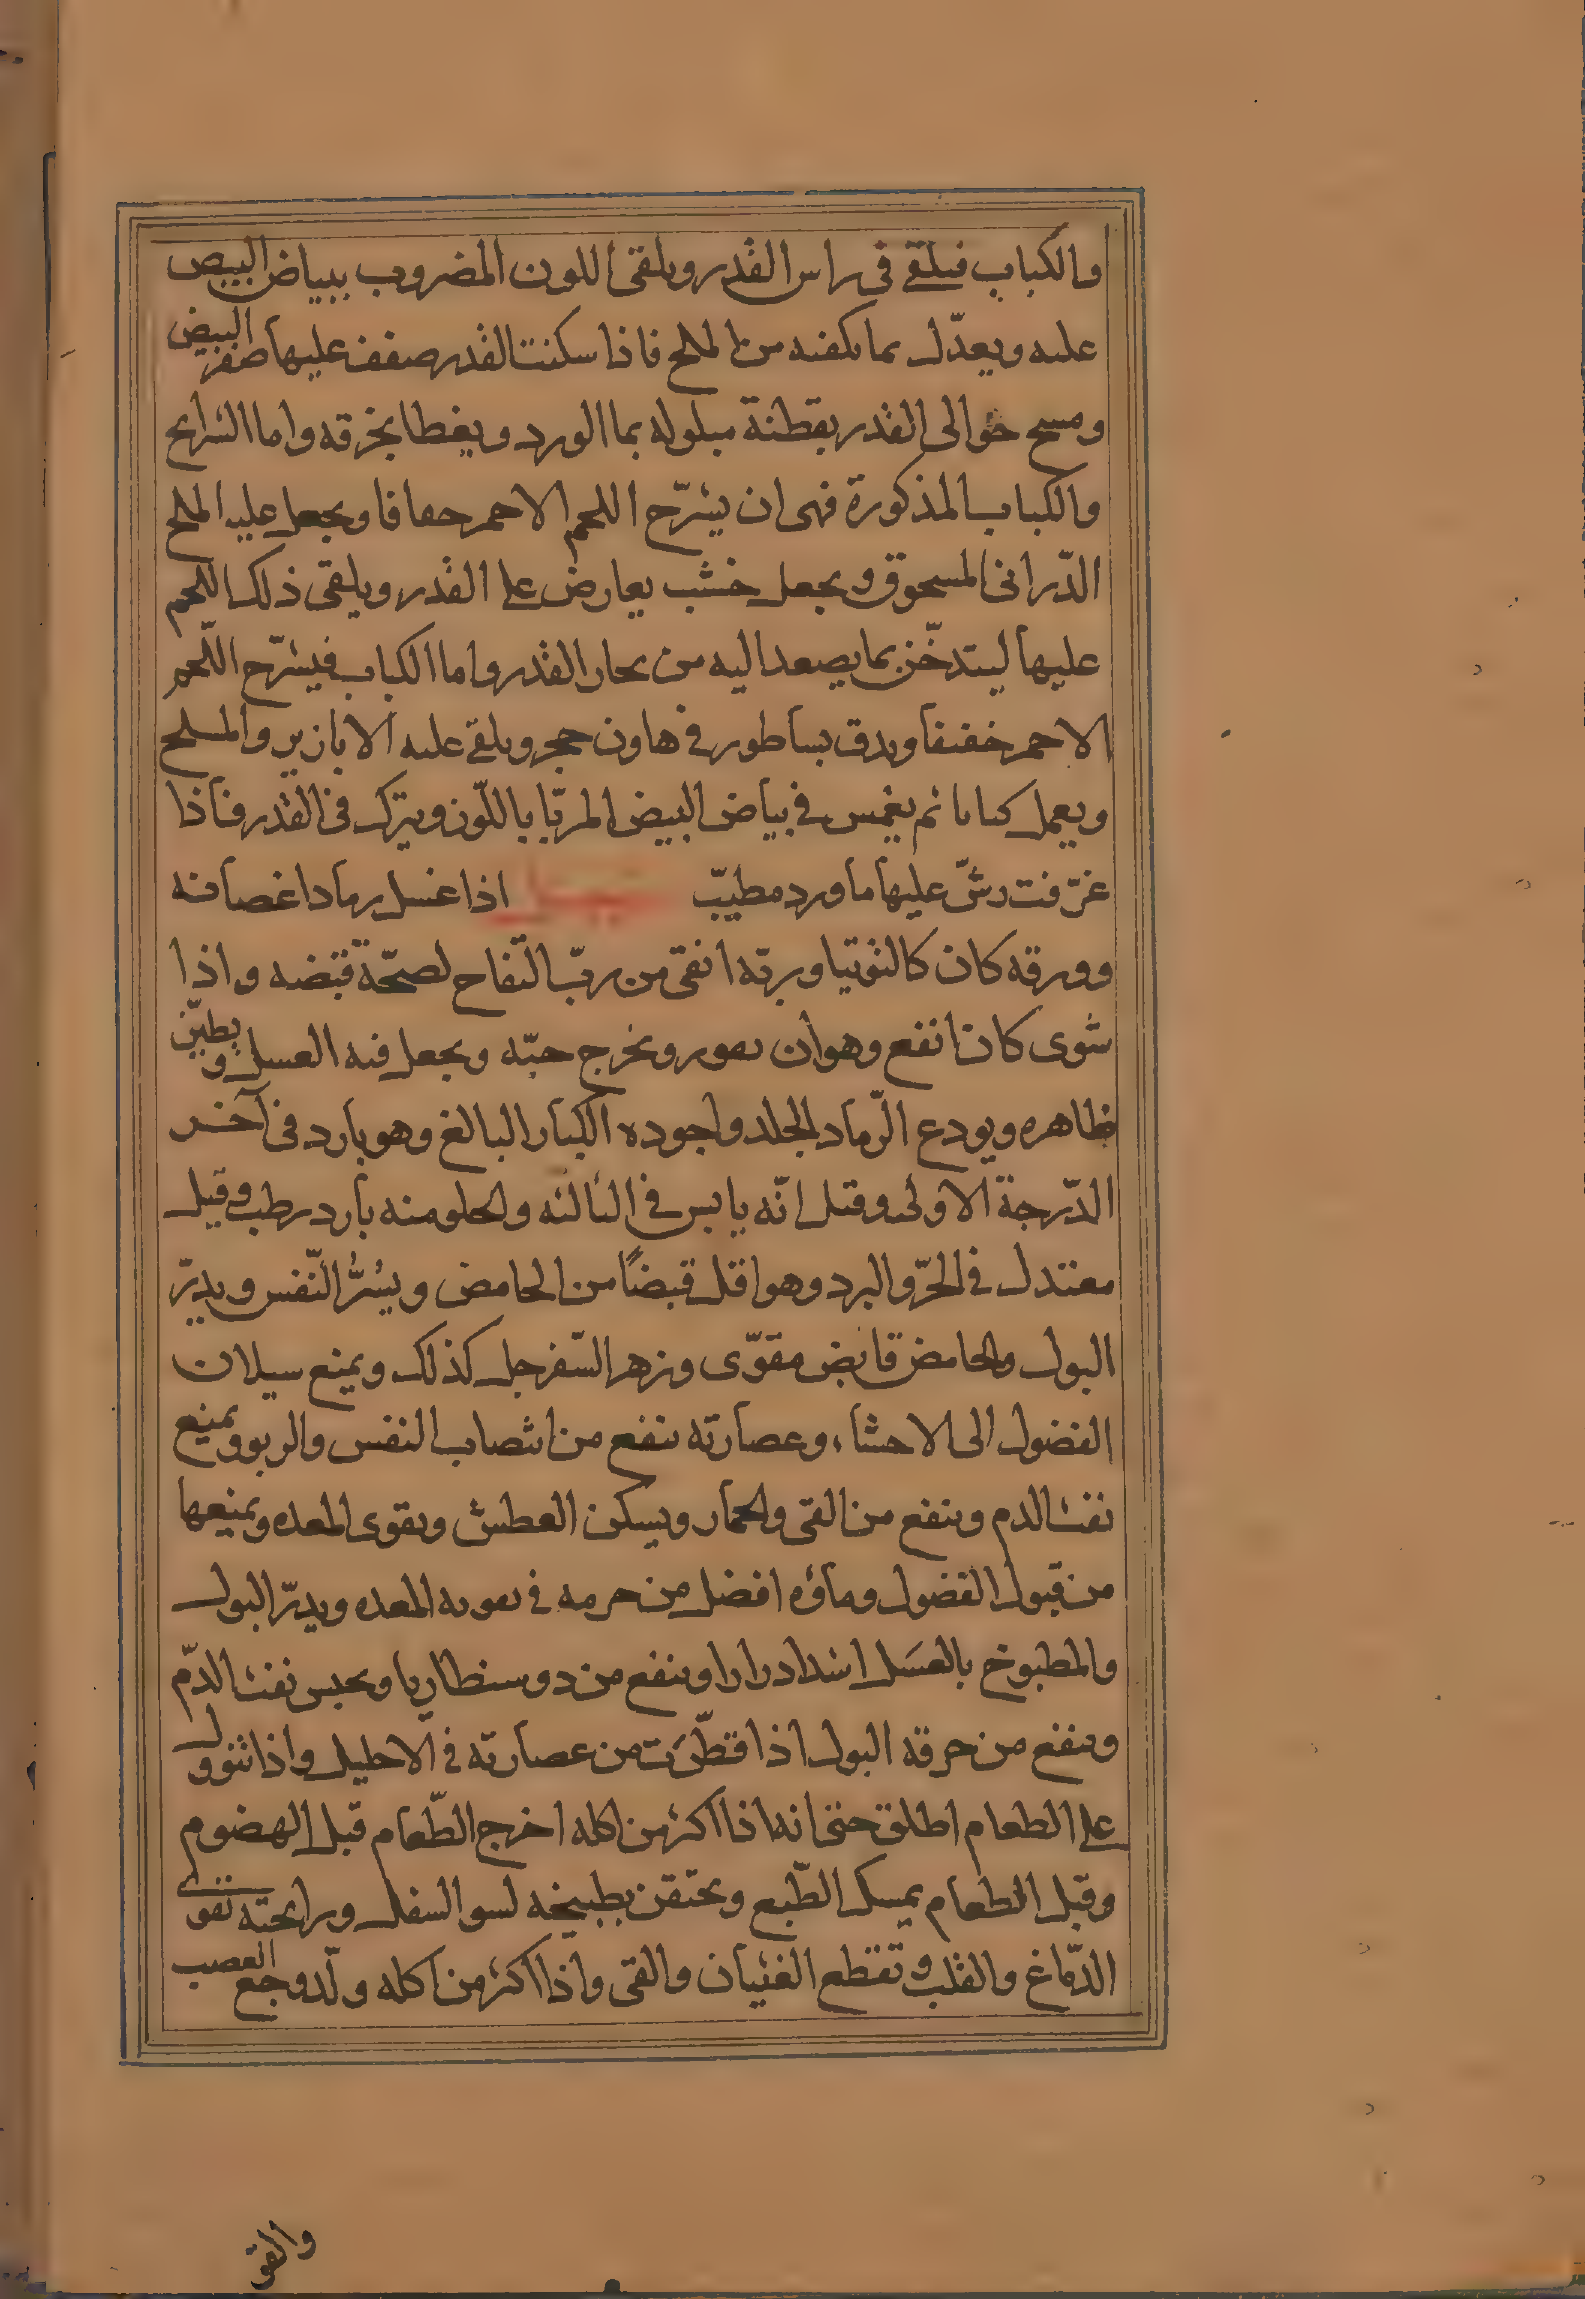 والكباب فيلقى في راس القدر ويلقى اللون المضروب ببياض البيض
عليه ويعدّل بما يكفيه من الملح فاذا سكنت القدر صفف عليها صفر البيض
ومسح حوالى القدر بقطنة مبلوله بما الورد ويغطا بخرقه واما الشرايح
والكباب المذكورة فهى ان يشرّح اللحم الاحمر خفافا ويجعل عليه الملح
الدّرانى المسحوق ويجعل خشب يعارض على القدر ويلقى ذلك اللحم
عليها ليتدخّن بما يصعد اليه من بخار القدر واما الكباب فيشرّح اللّحم
الاحمر خفيفا ويدق بساطور في هاون حجر ويلقى عليه الابازير والملح
ويعمل كبابا ثم يغمس في بياض البيض المربّا باللّون ويترك فى القدر فاذا
غرّفت رشّ عليها ماورد مطيّب اذا غسل رماد اغصانه
وورقه كان كالتوتيا وربّه انقى من ربّ التّفاح لصحّة قبضه واذا
شوى كان انفع وهو ان يقور ويخرج حبّه ويجعل فيه العسل ويطيّن
ظاهره ويودع الرّماد الجلد واجوده الكبار البالغ وهو بارد فى آخر
الدّرجة الاولى وقيل انّه يابس في الثالثه والحلو منه بارد رطب وقيل
معتدل في الحرّ والبرد وهو اقل قبضًا من الحامض ويسُرُّ النّفس ويدرّ
البول والحامض قابض مقوّى وزهر السّفرجل كذلك ويمنع سيلان
الفضول الى الاحشاء وعصارته ينفع من انتصاب النفس والربو ويمنع
نفث الدم وينفع من القى والخمار ويسكن العطش ويقوى المعده ويمنعها
من قبول الفضول وماؤه افضل من جرمه في تقويه المعده ويدرّ البول
والمطبوخ بالعسَل اشد ادرارا وينفع من دوسنطاريا ويحبس نفث الدّم
وينفع من حرقه البول اذا قطّرَت من عصارته في الاحليل واذا تنوول
على الطعام اطلق حتى انه اذا اكثر من اكله اخرج الطّعام قبل الهضوم
وقبل الطعام يمسك الطّبع ويحتقن بطبيخه لسو السفل ورايحته تقوى
الدّماغ والقلب وتقطع الغثيان والقى واذا اكثر من اكله ولّد وجع العصب
والقو